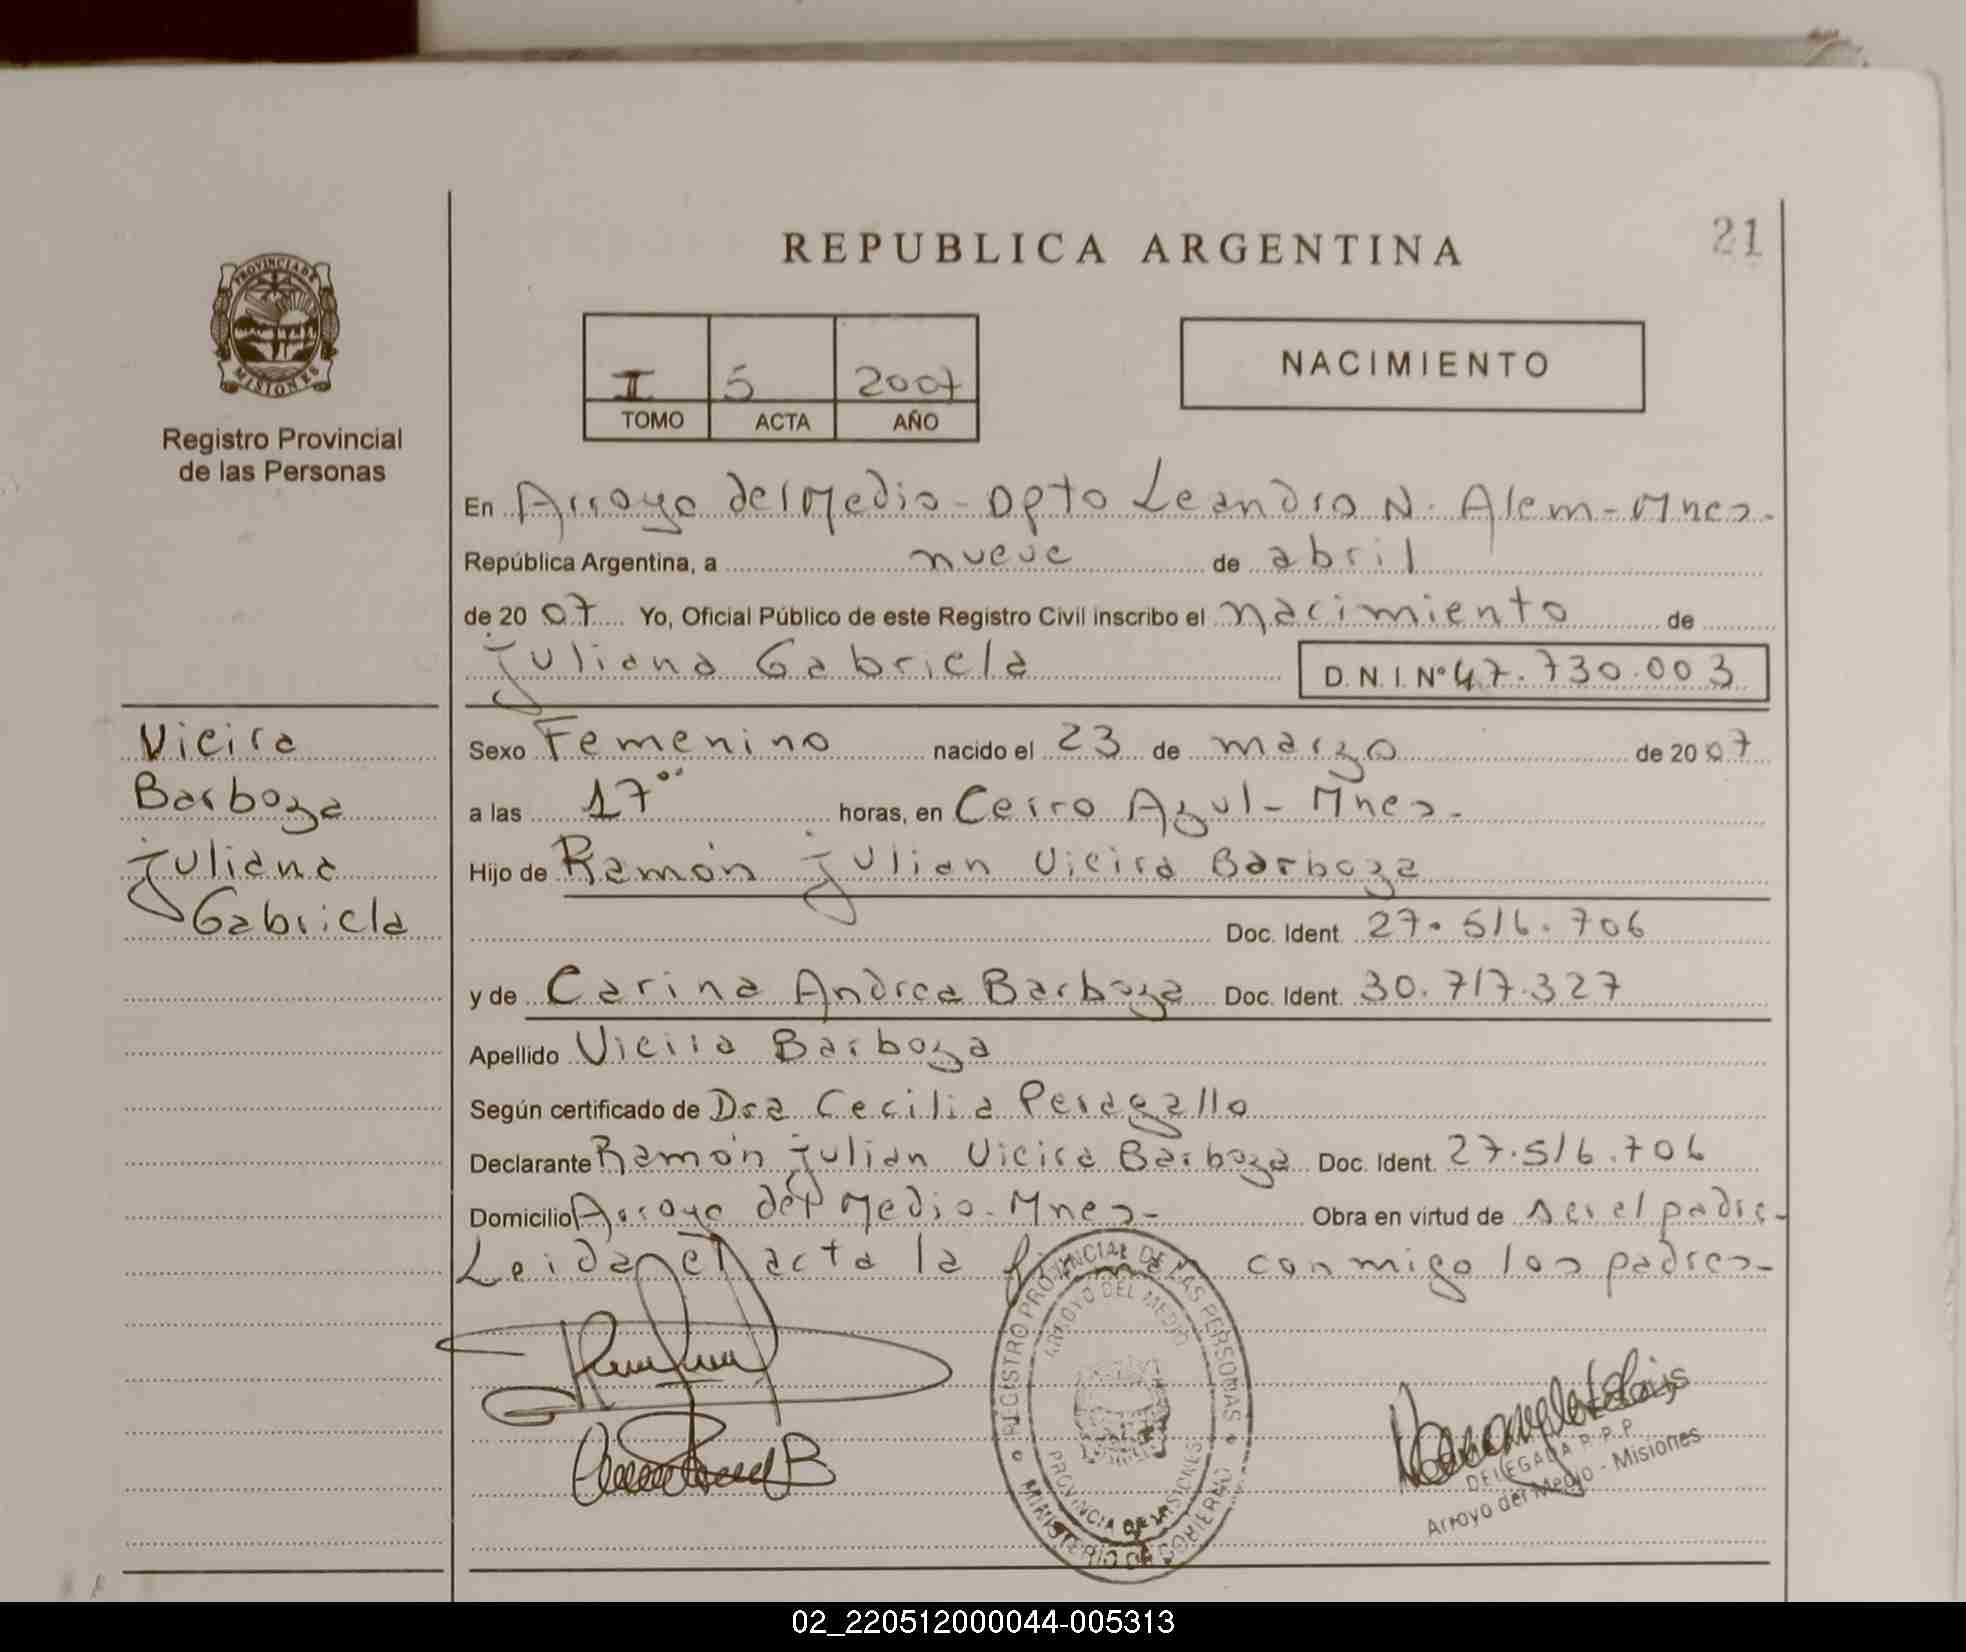 REPUBLICA ARGENTINA
21
PROVINCIA DE
MISIONES
Registro Provincial
de las Personas
I 5 2007
TOMO ACTA AÑO
NACIMIENTO
En Arroyo del Medio - Dpto Leandro N. Alem - Mnes -
República Argentina, a nueve de abril
de 20 07 Yo, Oficial Público de este Registro Civil inscribo el nacimiento de
Juliana Gabriela D. N. I. Nº 47.730.003
Vieira
Barboza
Juliana
Gabriela
Sexo Femenino nacido el 23 de marzo de 20 07
a las 17°° horas, en Cerro Azul - Mnes -
Hijo de Ramón Julian Vieira Barboza
Doc. Ident. 27.516.706
y de Carina Andrea Barboza Doc. Ident. 30.717.327
Apellido Vieira Barboza
Según certificado de Dra Cecilia Peragallo
Declarante Ramón Julian Vieira Barboza Doc. Ident. 27.516.706
Domicilio Arroyo del Medio - Mnes - Obra en virtud de ser el padre -
Leida el acta la conmigo los padres -
REGISTRO PROVINCIAL DE LAS PERSONAS
ARROYO DEL MEDIO
PROVINCIA DE MISIONES
MINISTERIO DE GOBIERNO
DELEGADA R.P.P.
Arroyo del Medio - Misiones
02_220512000044-005313